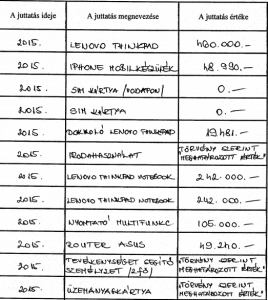 A juttatás ideje A juttatás megnevezése A juttatás értéke
2015. LENOVO THINKPAD 480.000.-
2015. IPHONE MOBILKÉSZÜLÉK 48.990.-
2015. SIM KÁRTYA /VODAFON/ 0.-
2015. SIM KÁRTYA 0.-
2015. DOKKOLÓ LENOVO THINKPAD 19.481.-
2015. IRODAHASZNÁLAT "TÖRVÉNY SZERINT MEGHATÁROZOTT ÉRTÉK"
2015. LENOVO THINKPAD NOTEBOOK 242.000.-
2015. LENOVO THINKPAD NOTEBOOK 242.000.-
2015. NYOMTATÓ MULTIFUNKC. 105.000.-
2015. ROUTER ASUS 49.240.-
2015. TEVÉKENYSÉGET SEGÍTŐ SZEMÉLYZET /2 fő/ "TÖRVÉNY SZERINT MEGHATÁROZOTT ÉRTÉK"
2015. ÜZEMANYAGKÁRTYA "TÖRVÉNY SZERINT MEGHATÁROZOTT ÉRTÉK"